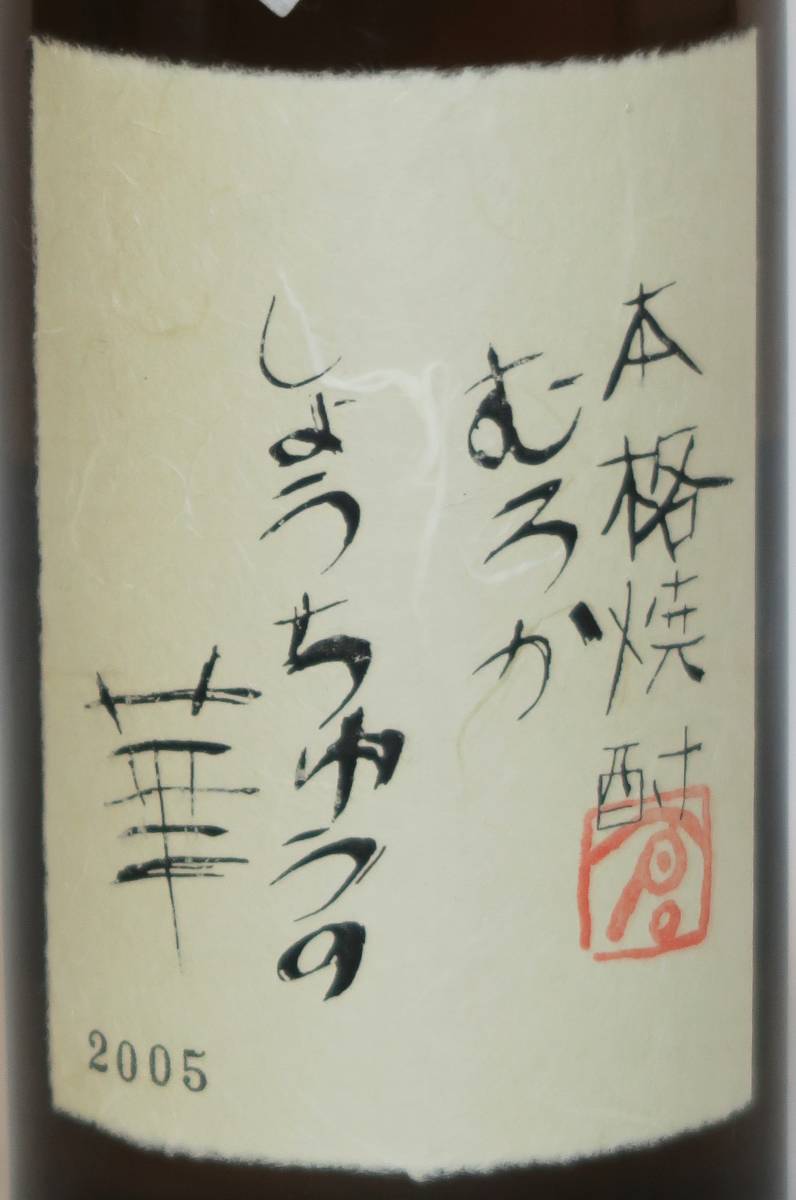 本格焼酎
むろか
しょうちゅうの
華
2005